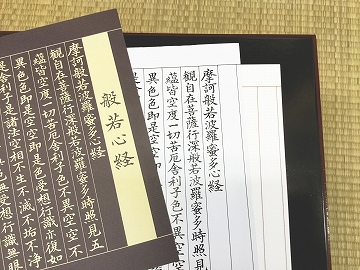 般若心経
観自在菩薩行深般若波羅蜜多時照見五
蘊皆空度一切苦厄舎利子色不異空空不
色即是空空即是色受想行識亦復如
是舎利子是諸法空相不生不滅不垢不浄
色無受想行識無眼
摩訶般若波羅蜜多心経
観自在菩薩行深般若波羅蜜多時照見
蘊皆空度一切苦厄舎利子色不異空空
異色色即是空空